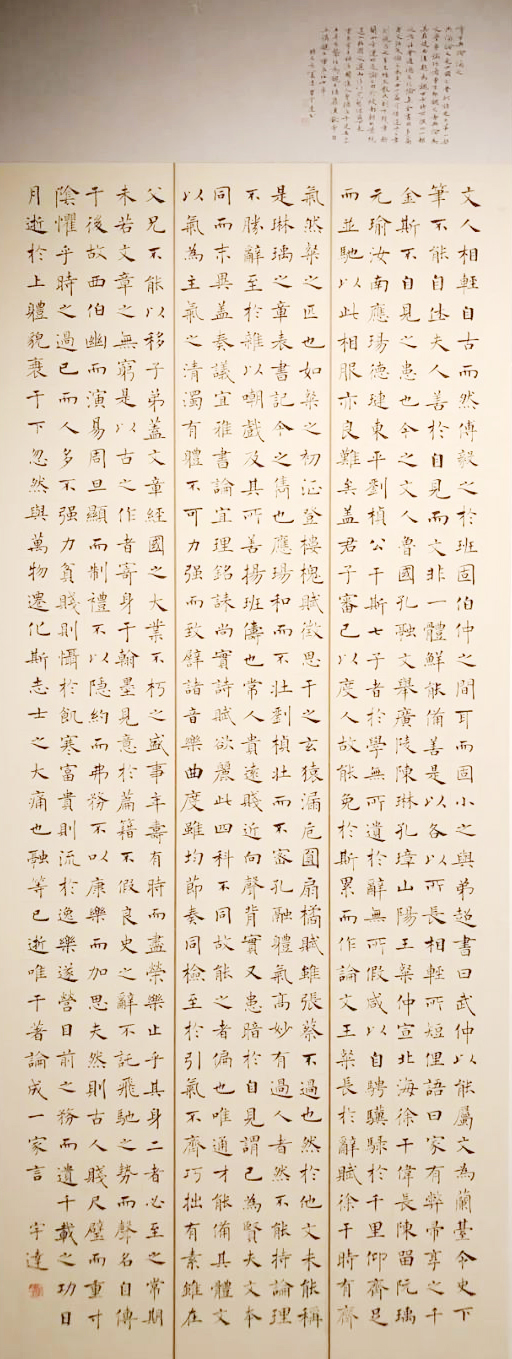 文人相輕自古而然傅毅之於班固伯仲之間耳而固小之與弟超書曰武仲以能屬文為蘭臺令史下
筆不能自休夫人善於自見而文非一體鮮能備善是以各以所長相輕所短俚語曰家有弊帚享之千
金斯不自見之患也今之文人魯國孔融文舉廣陵陳琳孔璋山陽王粲仲宣北海徐干偉長陳留阮瑀
元瑜汝南應瑒德璉東平劉楨公干斯七子者於學無所遺於辭無所假咸以自騁驥騄於千里仰齊足
而並馳以此相服亦良難矣蓋君子審己以度人故能免於斯累而作論文王粲長於辭賦徐干時有齊
氣然粲之匹也如粲之初征登樓槐賦徵思干之玄猿漏卮圓扇橘賦雖張蔡不過也然於他文未能稱
是琳瑀之章表書記今之雋也應瑒和而不壯劉楨壯而不密孔融體氣高妙有過人者然不能持論理
不勝辭至於雜以嘲戲及其所善揚班儔也常人貴遠賤近向聲背實又患暗於自見謂己為賢夫文本
同而末異蓋奏議宜雅書論宜理銘誄尚實詩賦欲麗此四科不同故能之者偏也唯通才能備其體文
以氣為主氣之清濁有體不可力强而致譬諸音樂曲度雖均節奏同檢至於引氣不齊巧拙有素雖在
父兄不能以移子弟蓋文章經國之大業不朽之盛事年壽有時而盡榮樂止乎其身二者必至之常期
未若文章之無窮是以古之作者寄身于翰墨見意於篇籍不假良史之辭不託飛馳之勢而聲名自傳
于後故西伯幽而演易周旦顯而制禮不以隱約而弗務不以康樂而加思夫然則古人賤尺璧而重寸
陰懼乎時之過已而人多不强力貧賤則懾於飢寒富貴則流於逸樂遂營目前之務而遺千載之功日
月逝於上體貌衰于下忽然與萬物遷化斯志士之大痛也融等已逝唯干著論成一家言 宇達